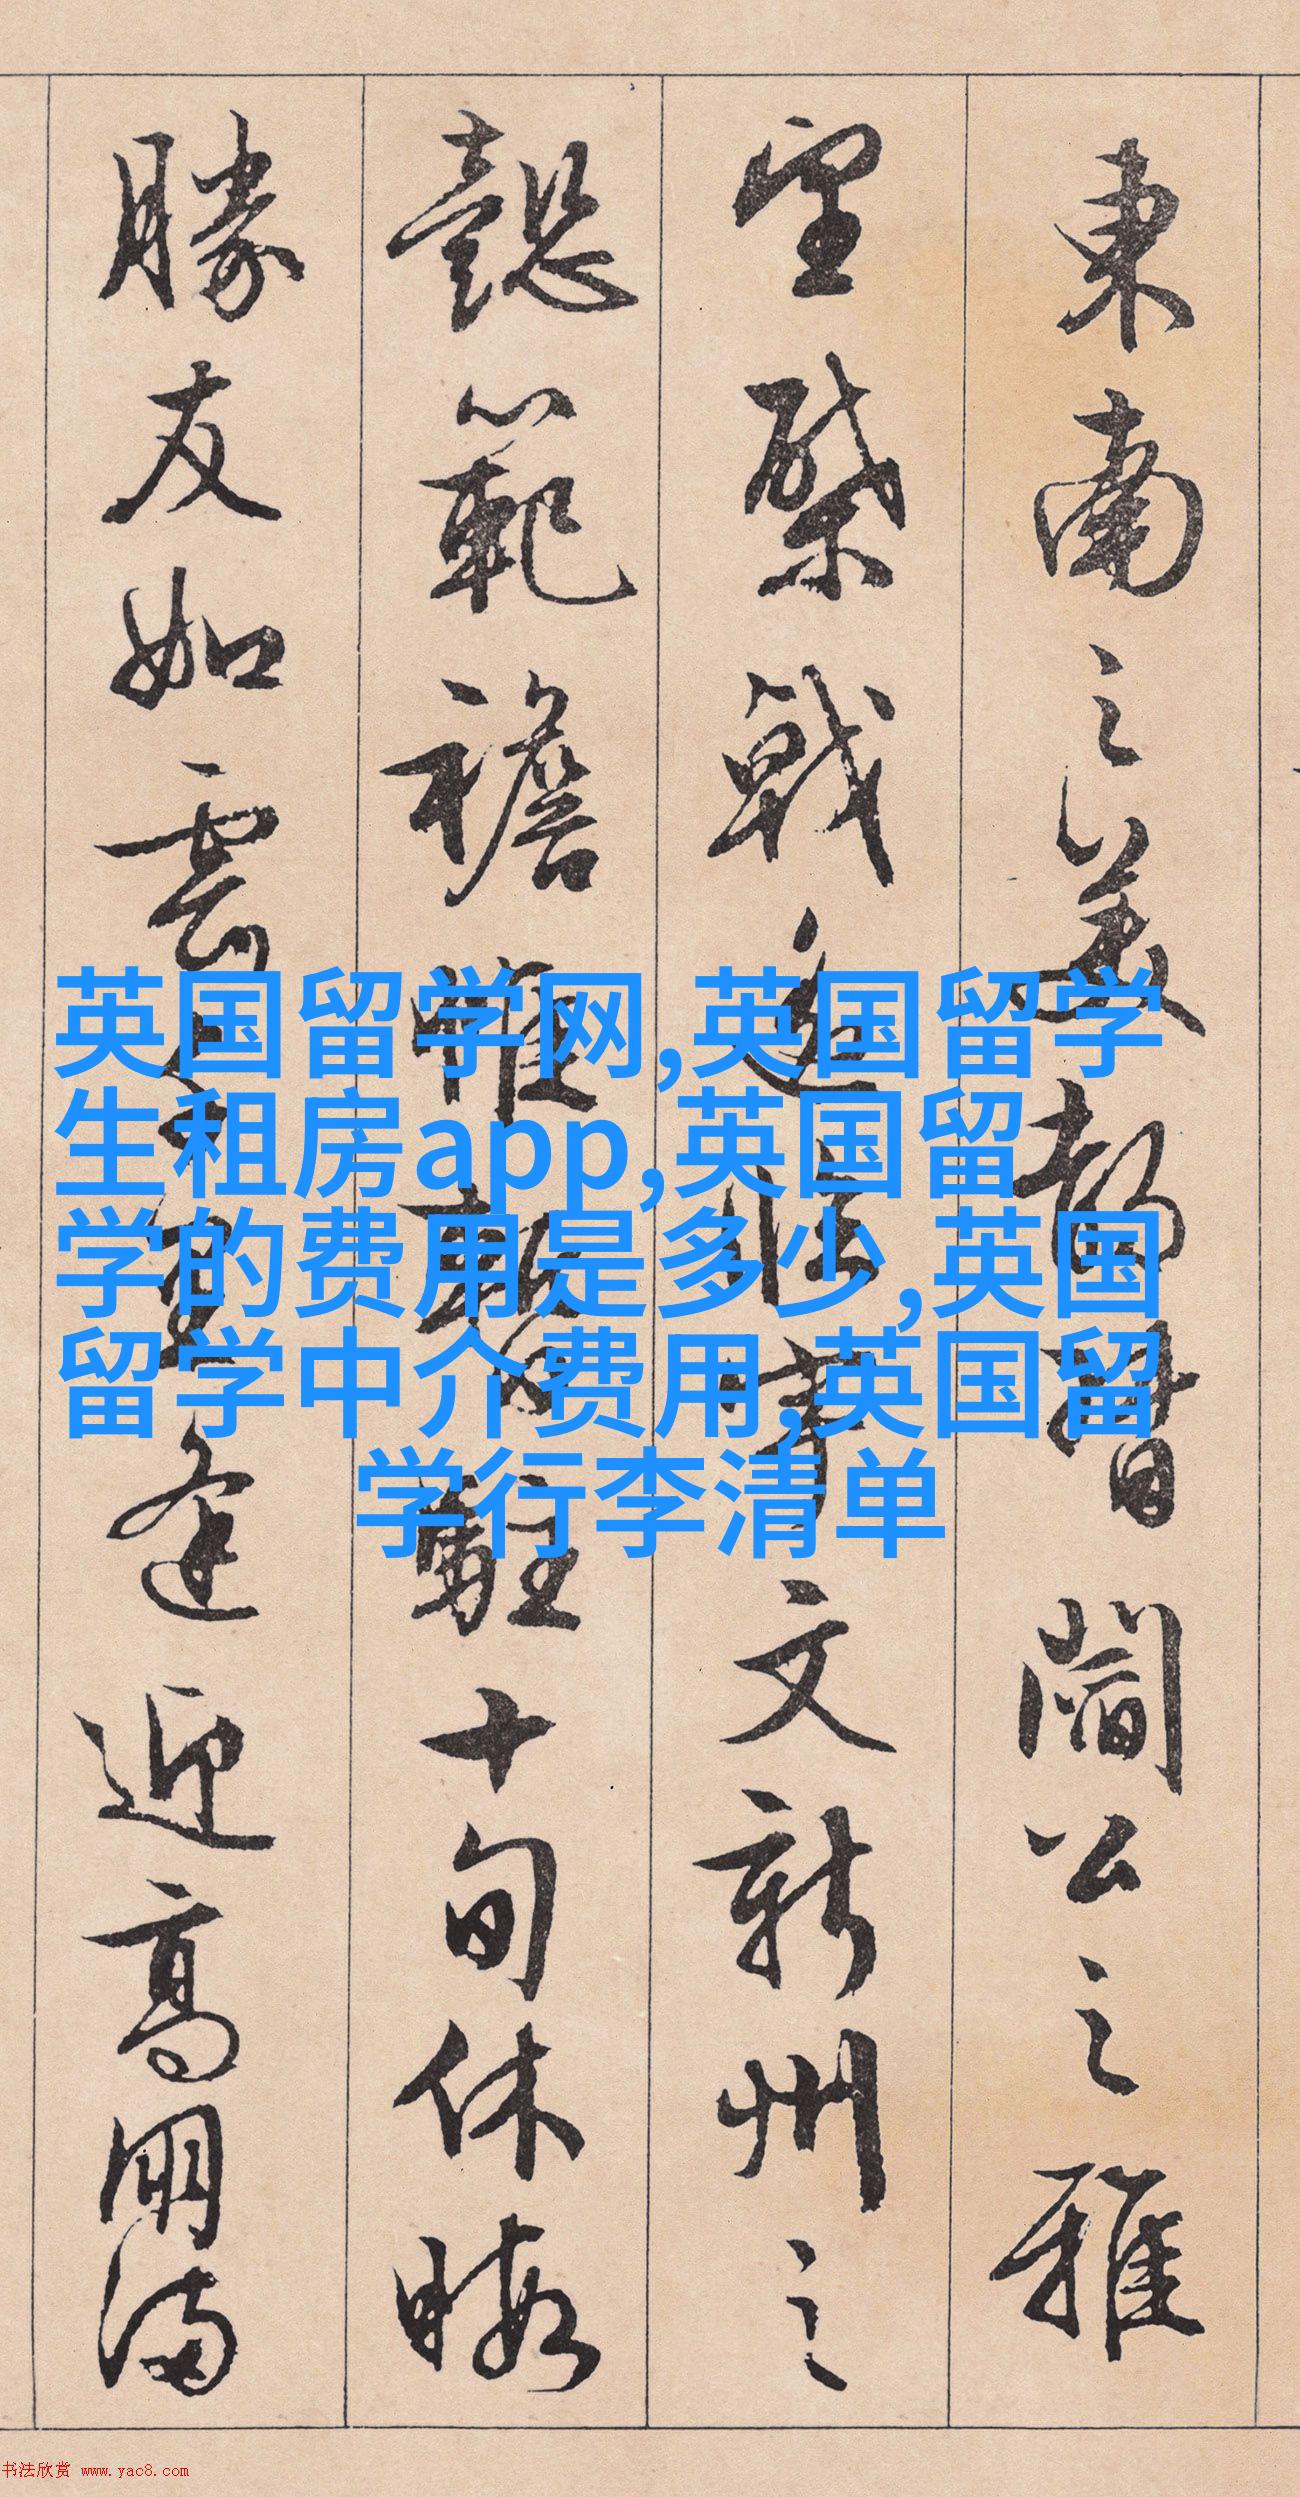 東南之美都督閻公之雅
望棨戟遥臨宇文新州之
懿範襜帷暫駐十旬休暇
勝友如雲千里逢迎高朋滿
英国留学网,英国留学
生租房app,英国留
学的费用是多少,英国
留学中介费用,英国留
学行李清单
书法欣赏 www.yac8.com